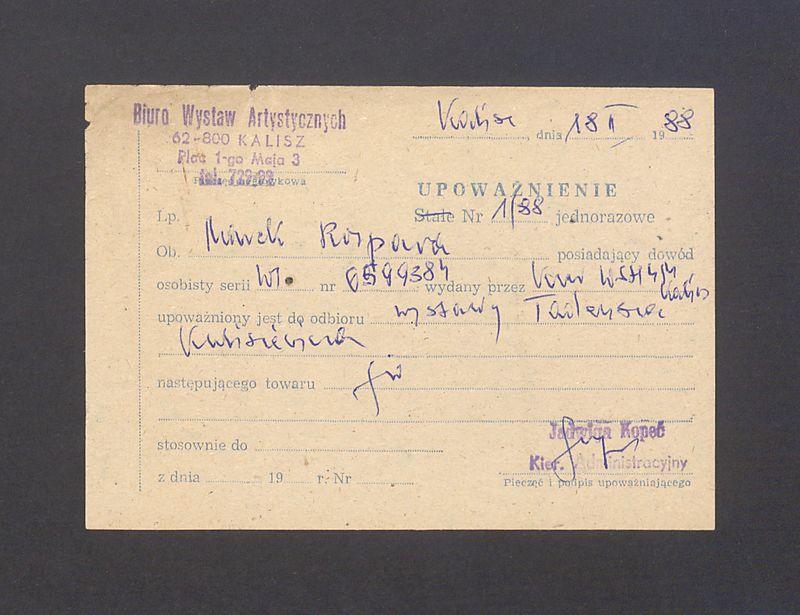 Biuro Wystaw Artystycznych
62-800 KALISZ
Plac 1-go Maja 3
tel.
Kalisz, dnia 18 II 1988
UPOWAŻNIENIE
Stałe Nr 1/88 jednorazowe
Lp.
Ob. Marek posiadający dowód
osobisty serii nr 0599384 wydany przez
Kalisz
upoważniony jest do odbioru wystawy Tadeusza
Kulisiewicza
następującego towaru
stosownie do
z dnia 19 r. Nr
Jadwiga Kopeć
Kier. Administracyjny
Pieczęć i podpis upoważniającego